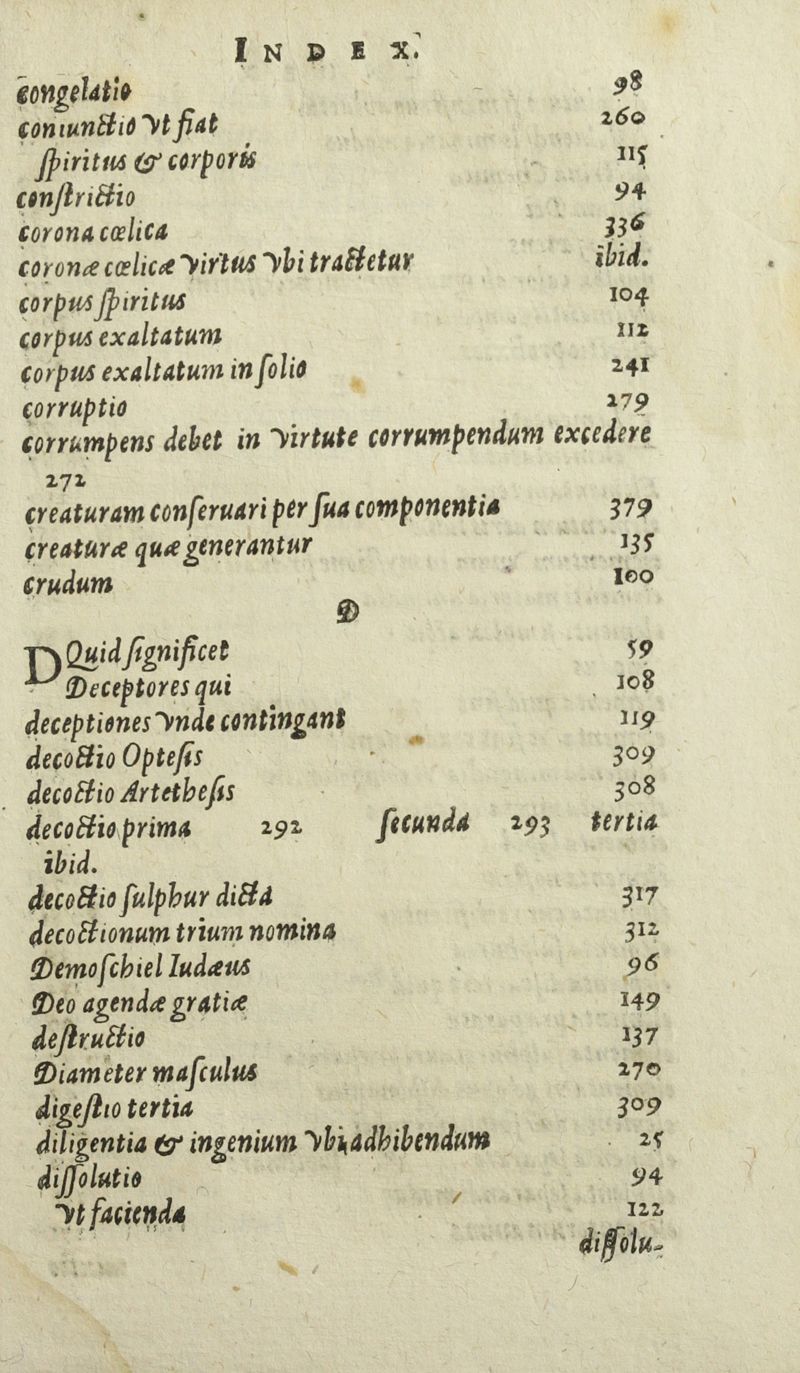 INDEX.
congelatio 98
coniunctio vt fiat 260
ſpiritus & corporis 115
conſtrictio 94
corona cœlica 336
coronæ cœlicæ virtus vbi tractetur ibid.
corpus ſpiritus 104
corpus exaltatum 112
corpus exaltatum in ſolio 241
corruptio 279
corrumpens debet in virtute corrumpendum excedere
272
creaturam conſeruari per ſua componentia 379
creaturæ quæ generantur 135
crudum 100
D
D Quid ſignificet 59
Deceptores qui 108
deceptiones vnde contingant 119
decoctio Opteſis 309
decoctio Artetheſis 308
decoctio prima 292 ſecunda 293 tertia
ibid.
decoctio ſulphur dicta 317
decoctionum trium nomina 312
Demoſchiel Iudæus 96
Deo agendæ gratiæ 149
deſtructio 137
Diameter maſculus 270
digeſtio tertia 309
diligentia & ingenium vbi adhibendum 25
diſſolutio 94
vt facienda 122
diſſolu-